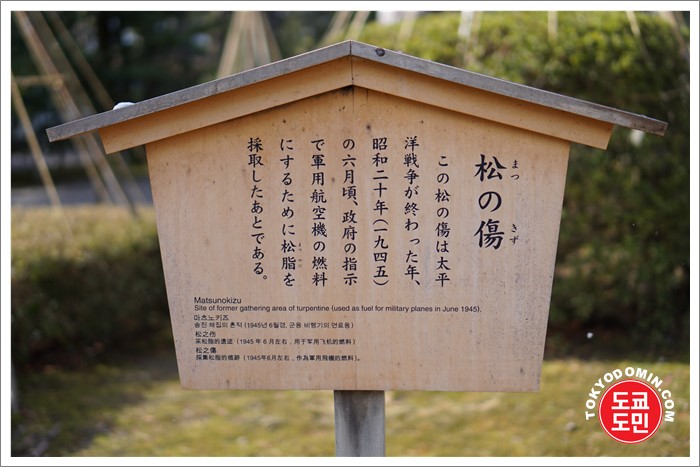 松の傷
まつ きず
この松の傷は太平
洋戦争が終わった年、
昭和二十年(一九四五)
の六月頃、政府の指示
で軍用航空機の燃料
にするために松脂を
採取したあとである。
Matsunokizu
Site of former gathering area of turpentine (used as fuel for military planes in June 1945).
마츠노키즈
송진 채집의 흔적 (1945년 6월경, 군용 비행기의 연료용)
松之伤
采松脂的遗迹（1945 年 6 月左右，用于军用飞机的燃料）
松之傷
採集松脂的痕跡（1945年6月左右，作為軍用飛機的燃料）。
TOKYODOMIN.COM
도쿄
도민